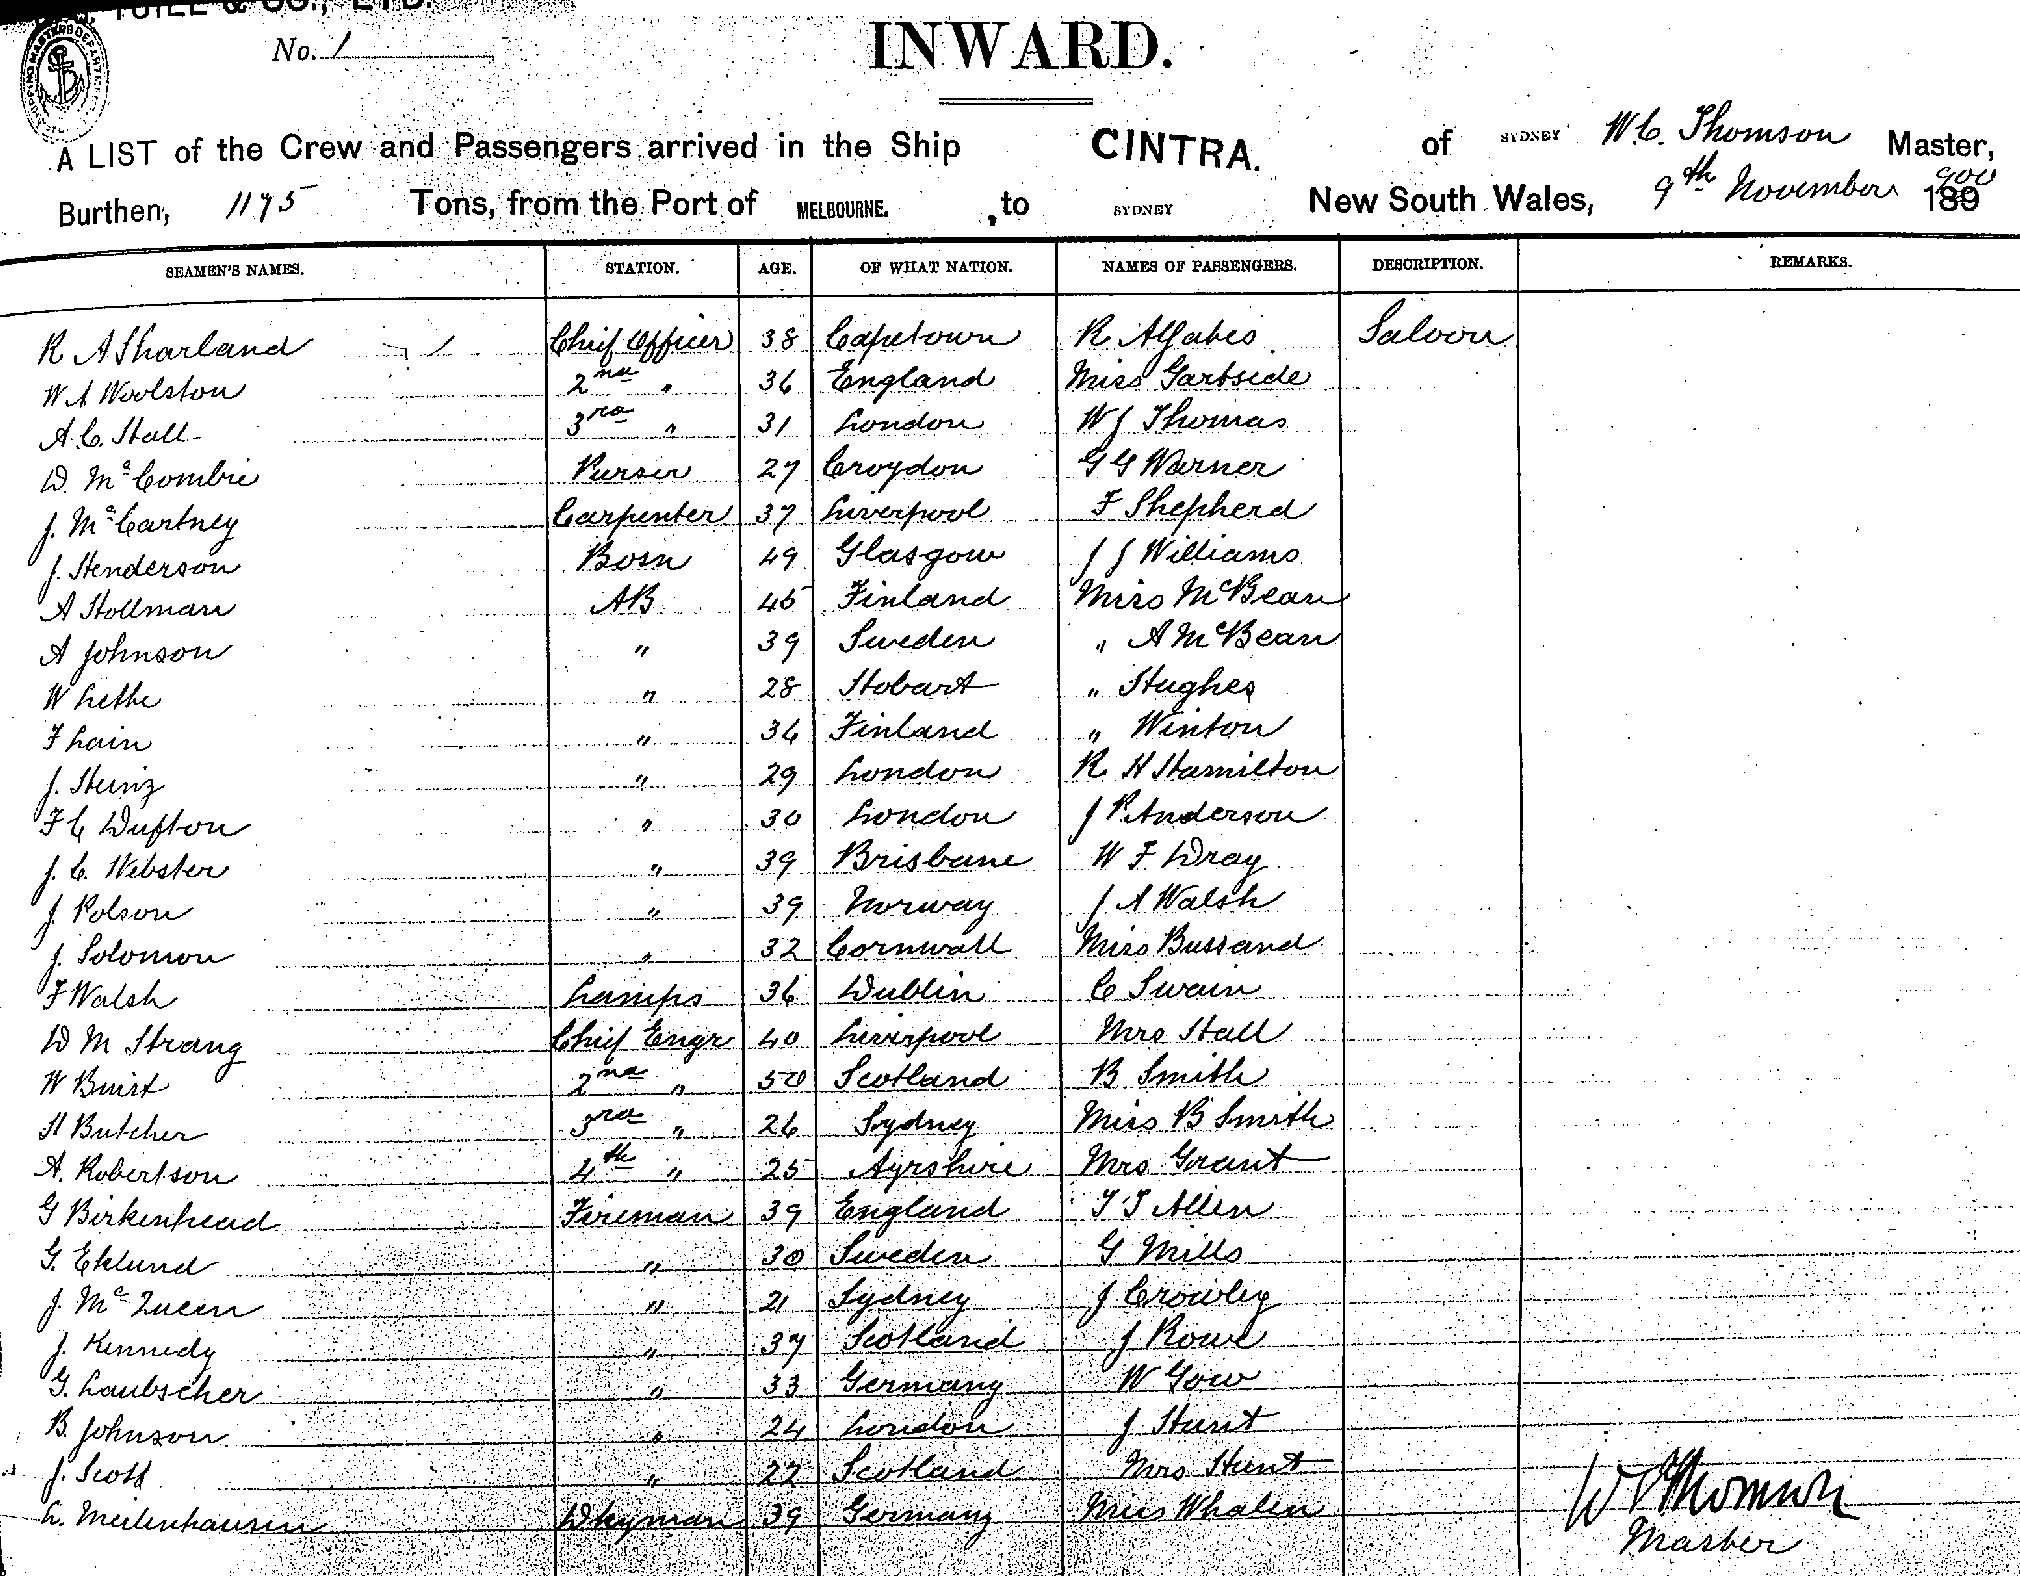 TUILL & CO., LTD.
No. 1
INWARD.
A LIST of the Crew and Passengers arrived in the Ship CINTRA. of SYDNEY W. C. Thomson Master,
Burthen, 1195 Tons, from the Port of MELBOURNE. , to SYDNEY New South Wales, 9th November 1900
SEAMEN'S NAMES. STATION. AGE. OF WHAT NATION. NAMES OF PASSENGERS. DESCRIPTION. REMARKS.
R A Sharland Chief Officer 38 Capetown R. A Saloon
W A Woolston 2nd " 36 England Miss Gartside
A. C. Hall 3rd " 31 London W J Thomas
D. McCombie Purser 27 Croydon G G Warner
J. McCartney Carpenter 37 Liverpool F Shepherd
J. Henderson Bosn 49 Glasgow J J Williams
A Hollman AB 45 Finland Miss McBean
A Johnson " 39 Sweden " A McBean
W Lethe " 28 Hobart " Hughes
F Lain " 36 Finland " Winton
J. Heinz " 29 London R H Hamilton
F C Dufton " 30 London J P Anderson
J. C. Webster " 39 Brisbane W F Dray
J Polson " 39 Norway J A Walsh
J. Solomon " 32 Cornwall Miss Bussand
F Walsh Lamps 36 Dublin C Swain
D M Strang Chief Engr 40 Liverpool Mrs Hall
W Buist 2nd " 50 Scotland B Smith
H Butcher 3rd " 26 Sydney Miss B Smith
A. Robertson 4th " 25 Ayrshire Mrs Grant
G Birkenhead Fireman 39 England T T Allen
G. Eklund " 30 Sweden G Mills
J. McQueen " 21 Sydney J Crowley
J. Kennedy " 37 Scotland J Rowe
G. Laubscher " 33 Germany W Gow
B. Johnson " 24 London J Hunt
J. Scott " 22 Scotland Mrs Hunt
L. Meilenhausen Dkyman 39 Germany Miss Whalen
W C Thomson
Master